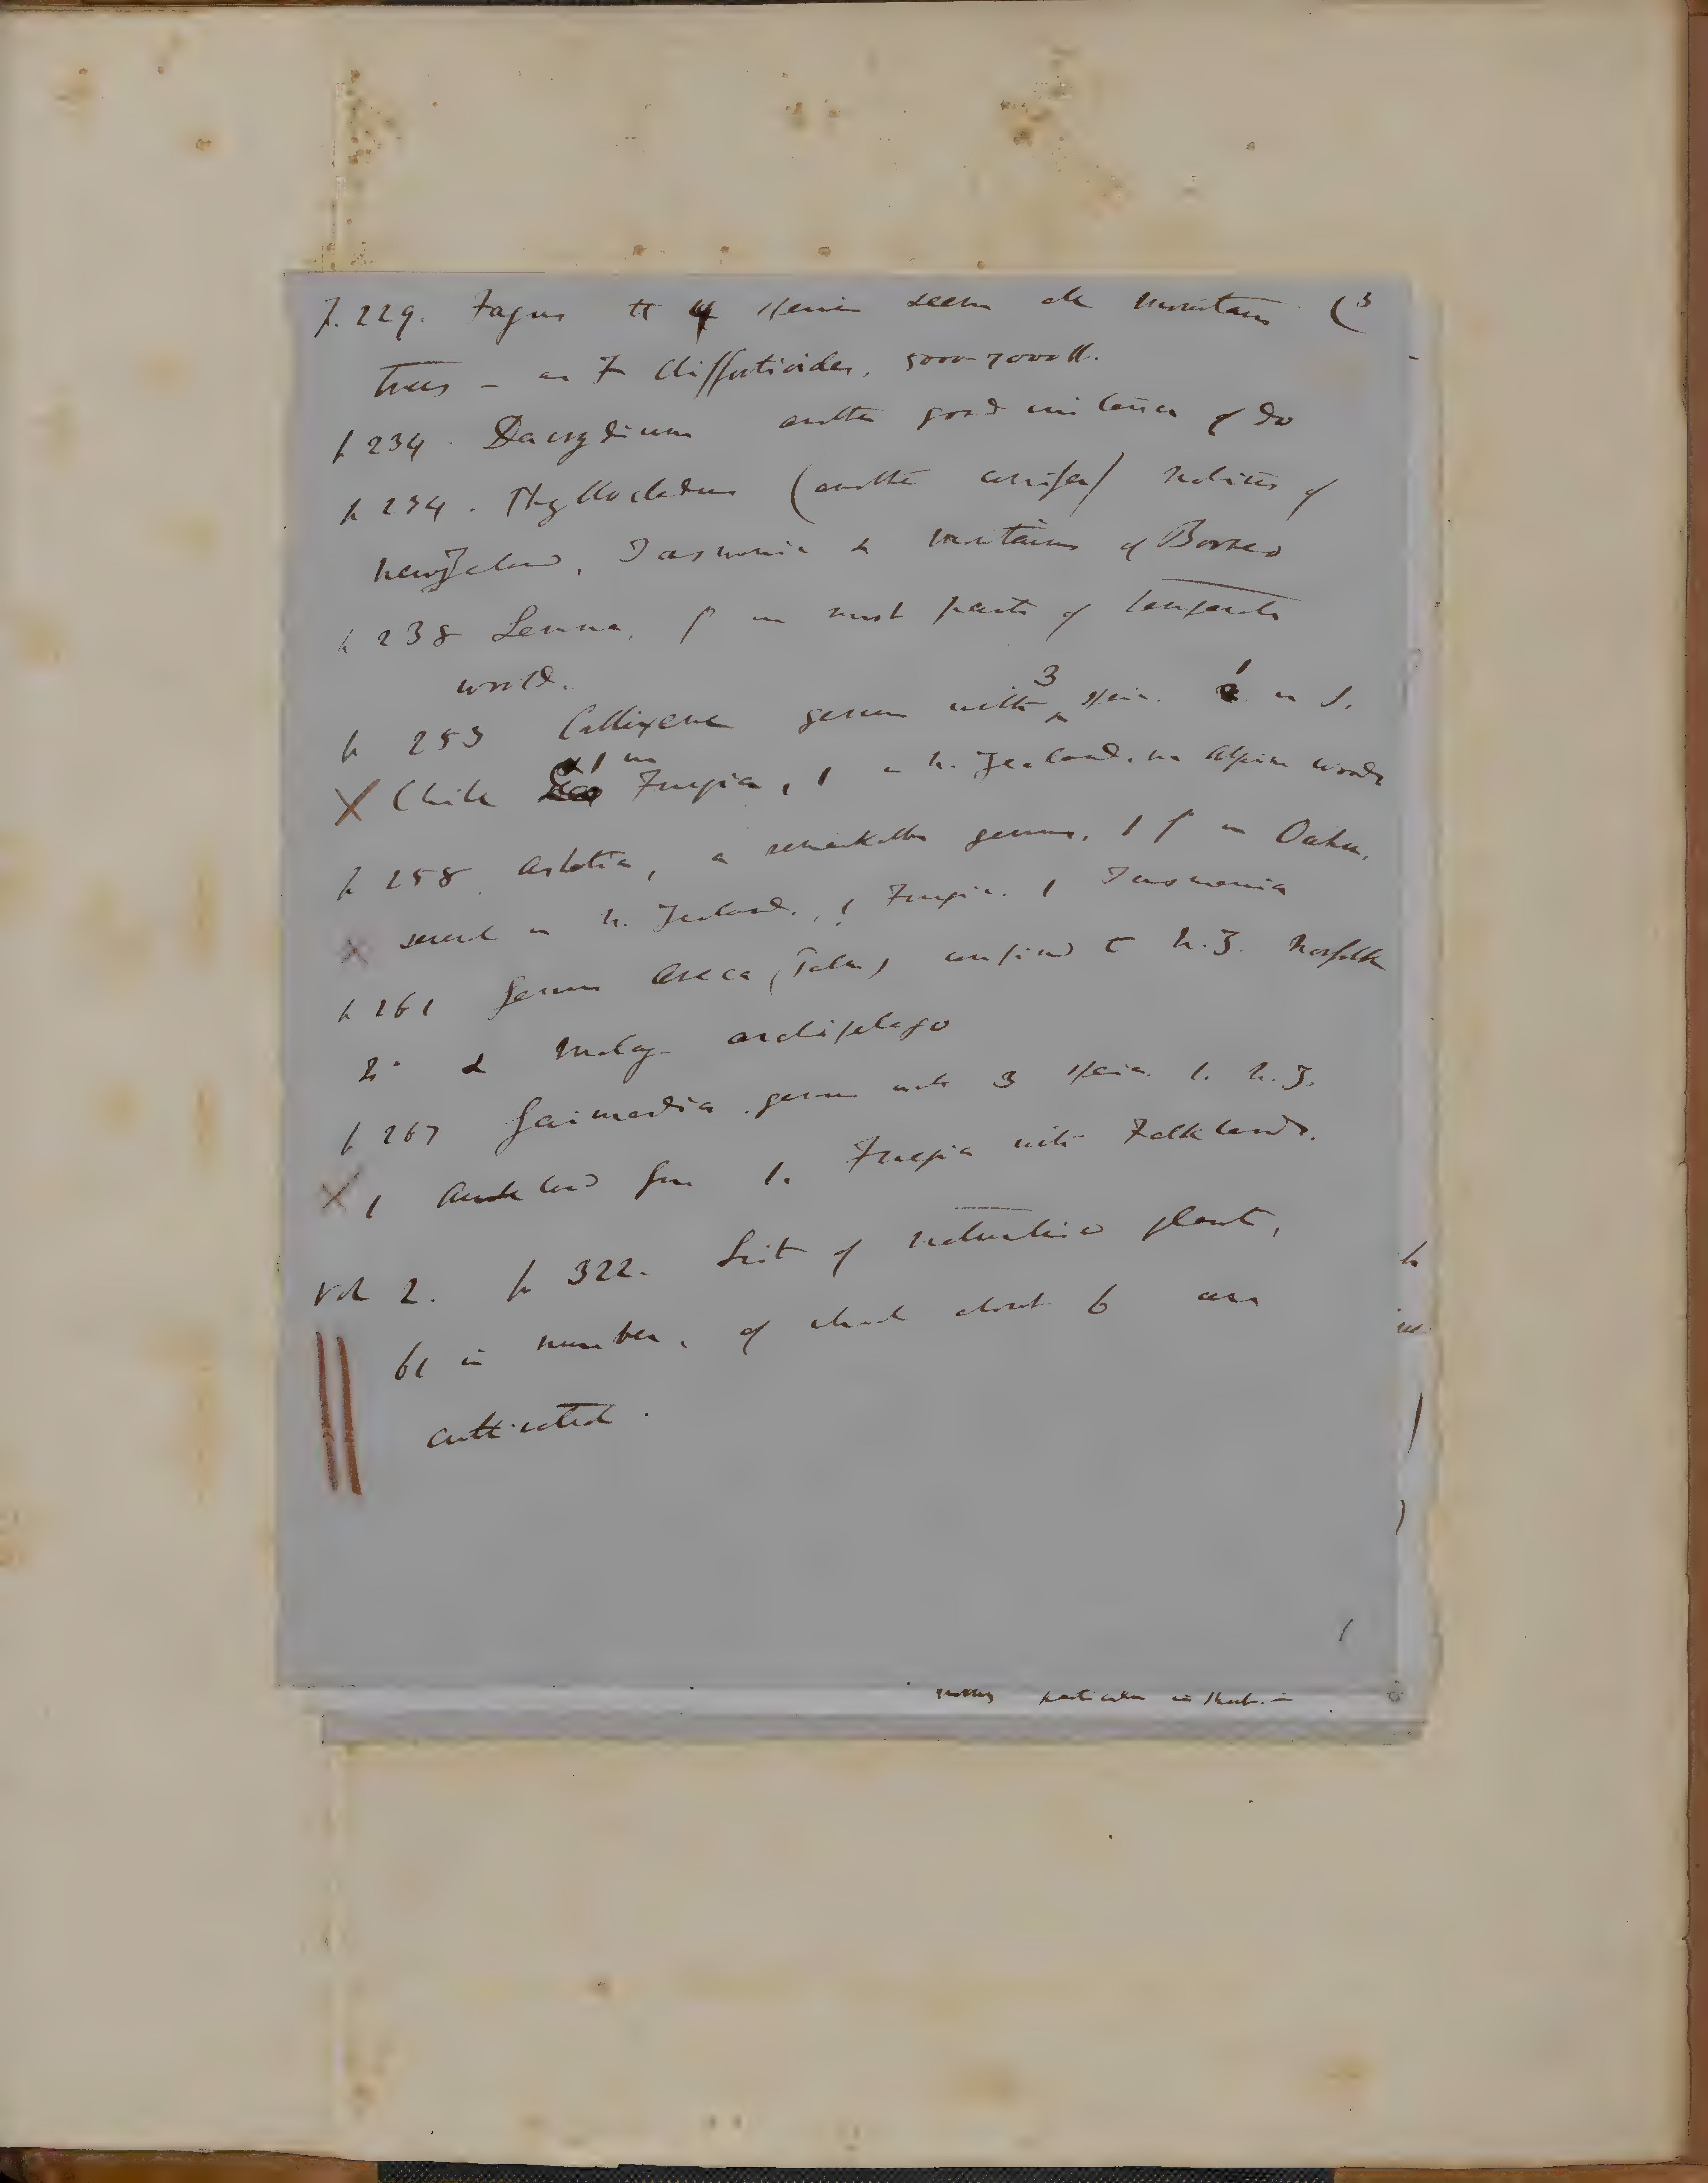 p. 229. Fagus the 4 species seem all mountain (3
trees — as F. Cliffortioides, 5000–7000 ft.
p 234. Dacrydium another good instance of do
p 234. Phyllocladus (another conifer) natives of
New Zealand, Tasmania & mountains of Borneo
p 238 Lemna, in most parts of temperate
world.
p 253 Callixene genus with 3 species. 1 in S.
X Chile 1 in Fuegia, 1 in N. Zealand. in Alpine woods
p 258 Astelia, a remarkable genus, 1 in Oahu,
X several in N. Zealand, 1 Fuegia. 1 Tasmania
p 261 Genus Areca, (Palm) confined to N.Z. Norfolk
& Malay archipelago
p 267 Gaimardia genus with 3 species 1. N.Z.
X 1 Auckland 1. Fuegia with Falklands.
Vol 2. p 322. List of naturalised plants,
61 in number, of which about 6 are
cultivated.
nothing particular in that. —